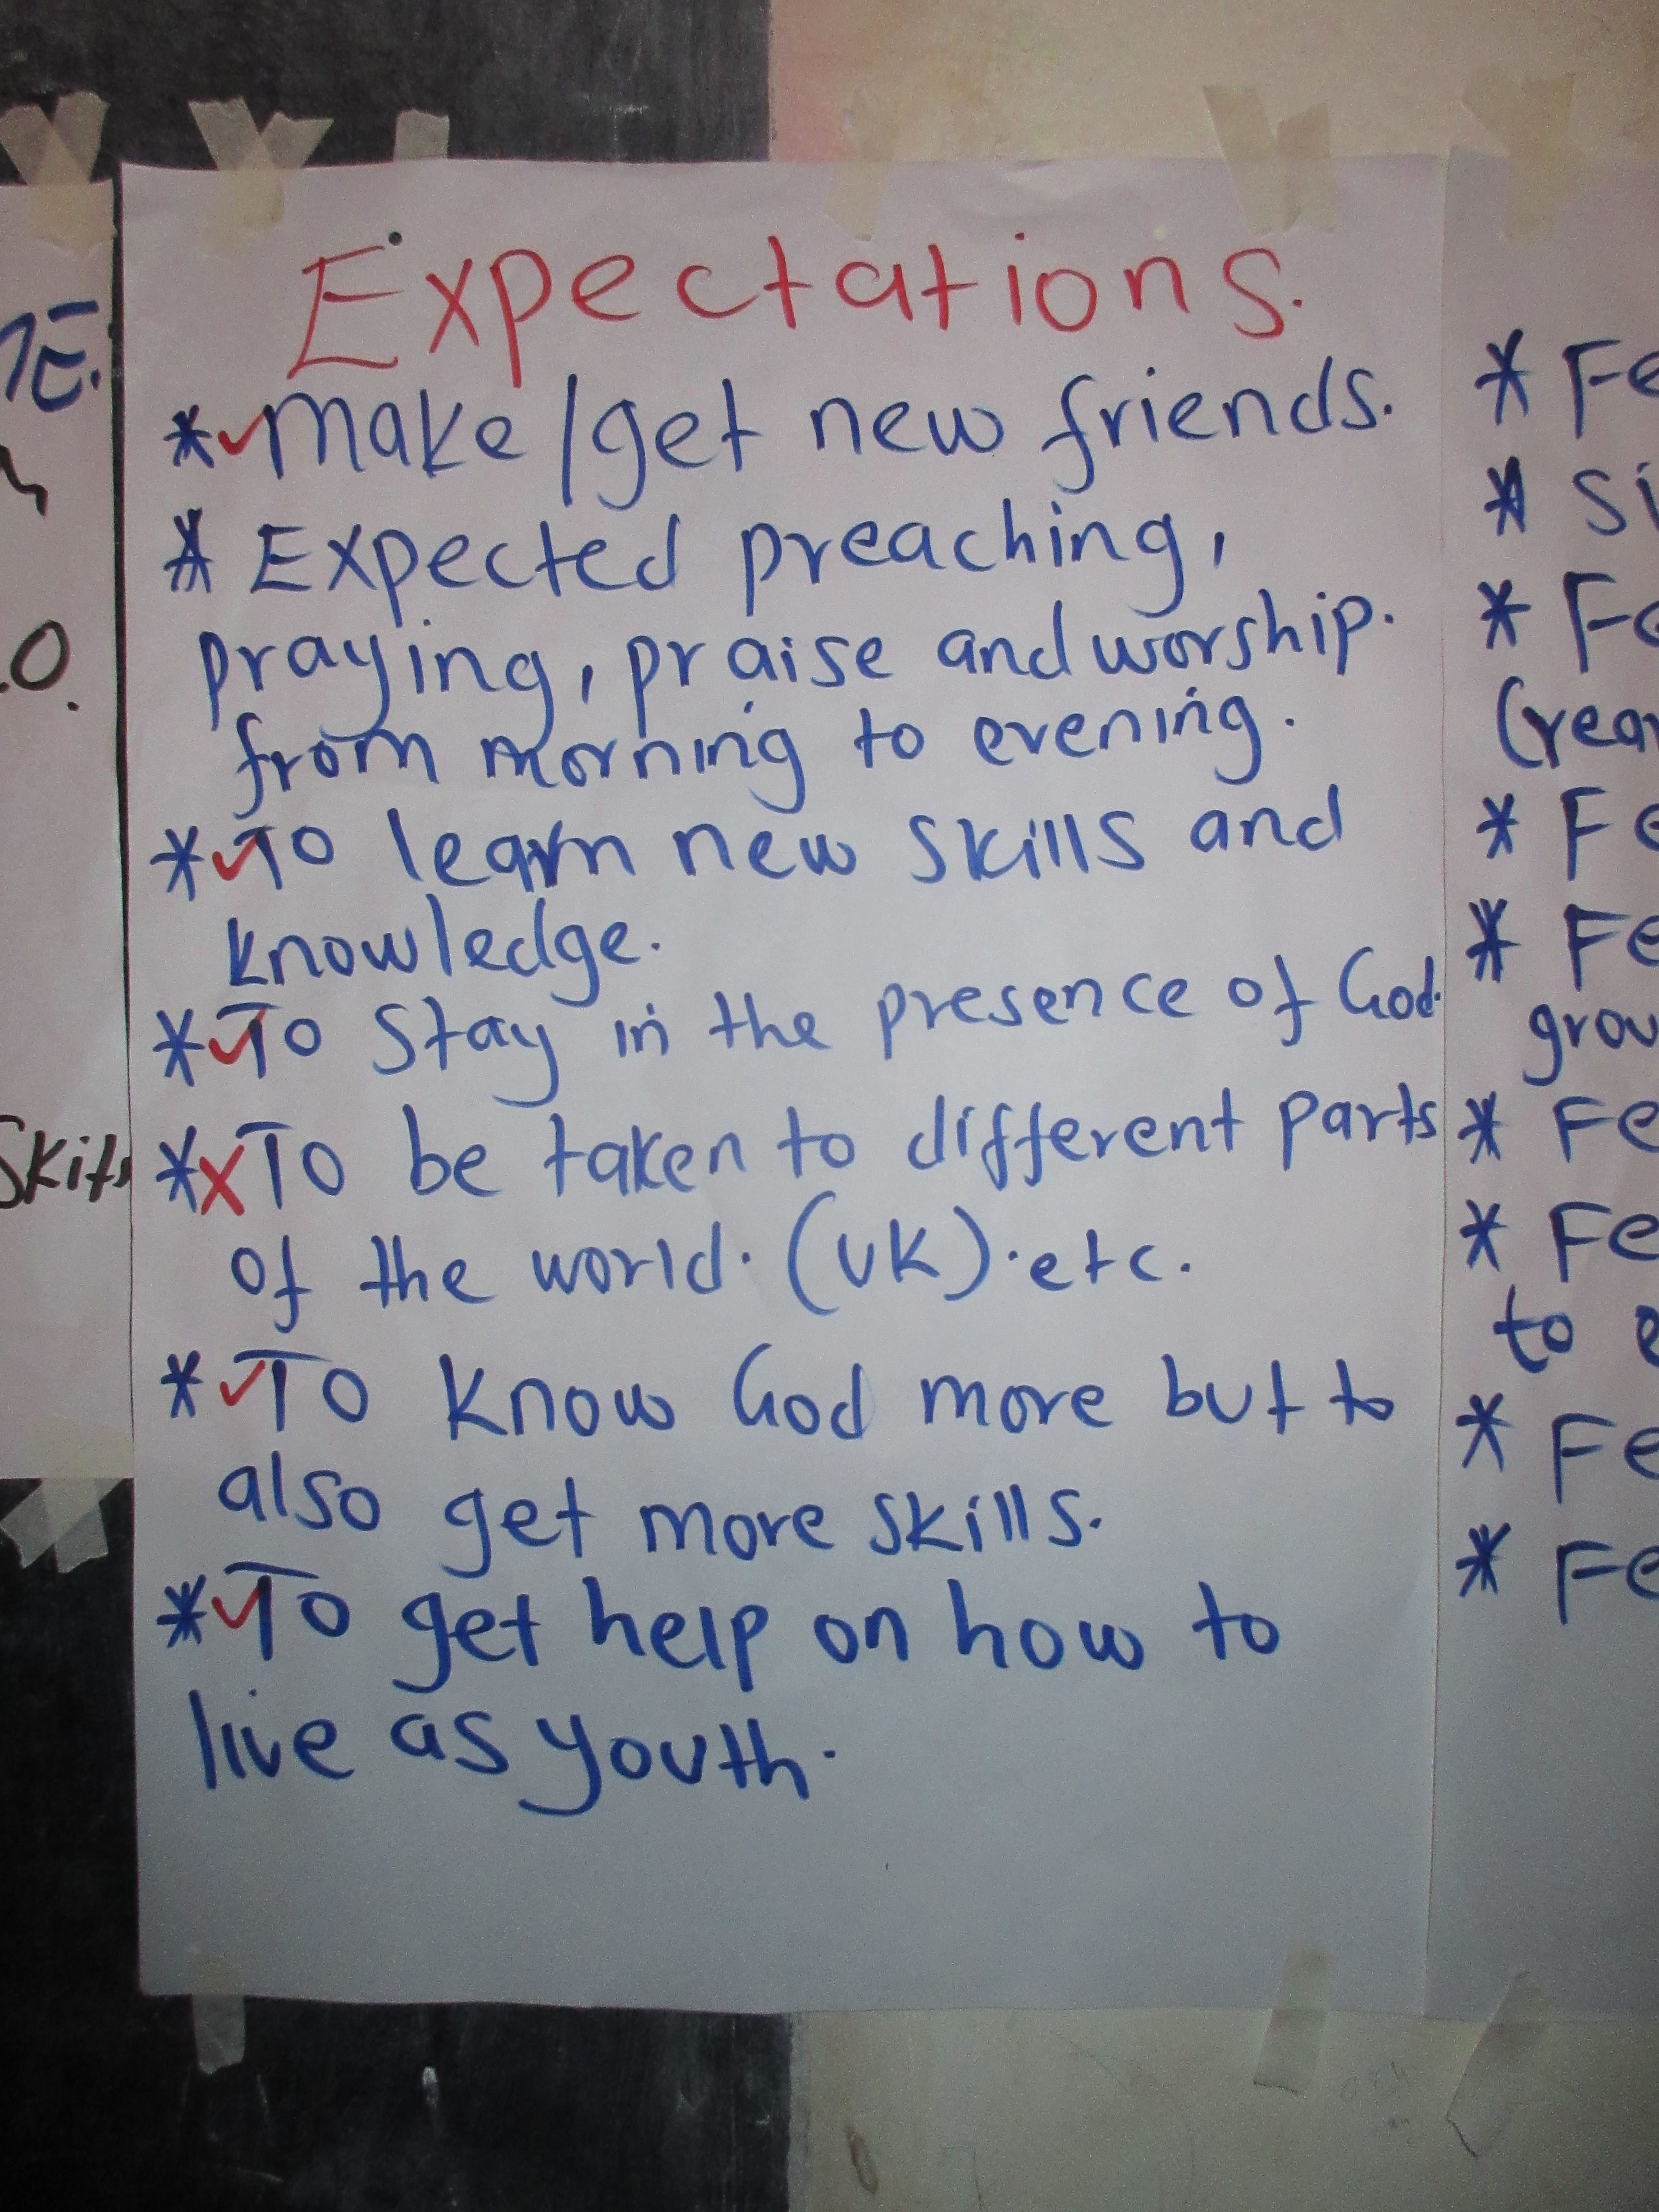 Expectations.
*✓Make/get new friends.
* Expected preaching,
praying, praise and worship.
from morning to evening.
*✓To learn new skills and
knowledge.
*✓To stay in the presence of God.
*xTo be taken to different parts
of the world. (UK). etc.
*✓To know God more but to
also get more skills.
*✓To get help on how to
live as youth.
O.
Skits
* Fe
* Si
* Fe
* Fe
* Fe
grou
* Fe
* Fe
to e
* Fe
* Fe